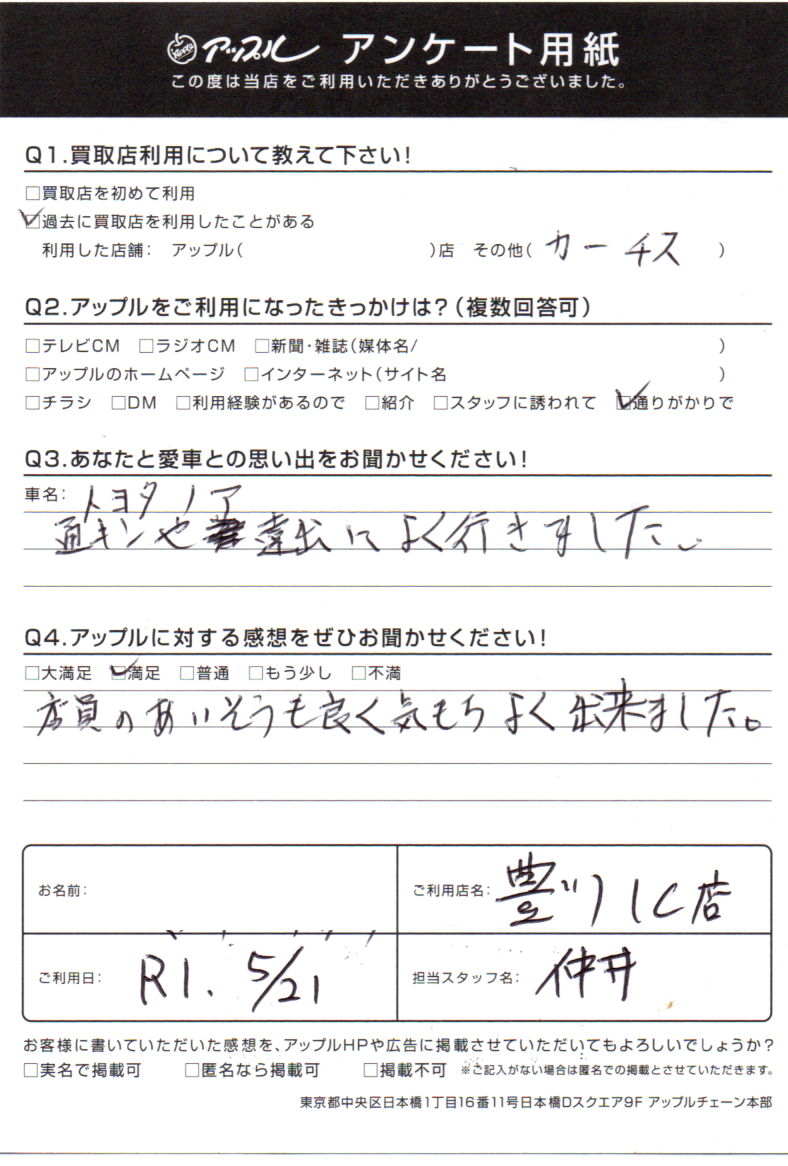 アップル アンケート用紙
この度は当店をご利用いただきありがとうございました。
Q1.買取店利用について教えて下さい!
□買取店を初めて利用
☑過去に買取店を利用したことがある
利用した店舗: アップル( )店 その他( カーチス )
Q2.アップルをご利用になったきっかけは?(複数回答可)
□テレビCM □ラジオCM □新聞・雑誌(媒体名/ )
□アップルのホームページ □インターネット(サイト名 )
□チラシ □DM □利用経験があるので □紹介 □スタッフに誘われて ☑通りがかりで
Q3.あなたと愛車との思い出をお聞かせください!
車名: トヨタ ノア
通キンや遠出によく行きました。
Q4.アップルに対する感想をぜひお聞かせください!
□大満足 ☑満足 □普通 □もう少し □不満
店員のあいそうも良く気もちよく出来ました。
お名前:
ご利用店名: 豊川IC店
ご利用日: R1. 5/21
担当スタッフ名: 仲井
お客様に書いていただいた感想を、アップルHPや広告に掲載させていただいてもよろしいでしょうか?
□実名で掲載可 □匿名なら掲載可 □掲載不可 ※ご記入がない場合は匿名での掲載とさせていただきます。
東京都中央区日本橋1丁目16番11号日本橋Dスクエア9F アップルチェーン本部